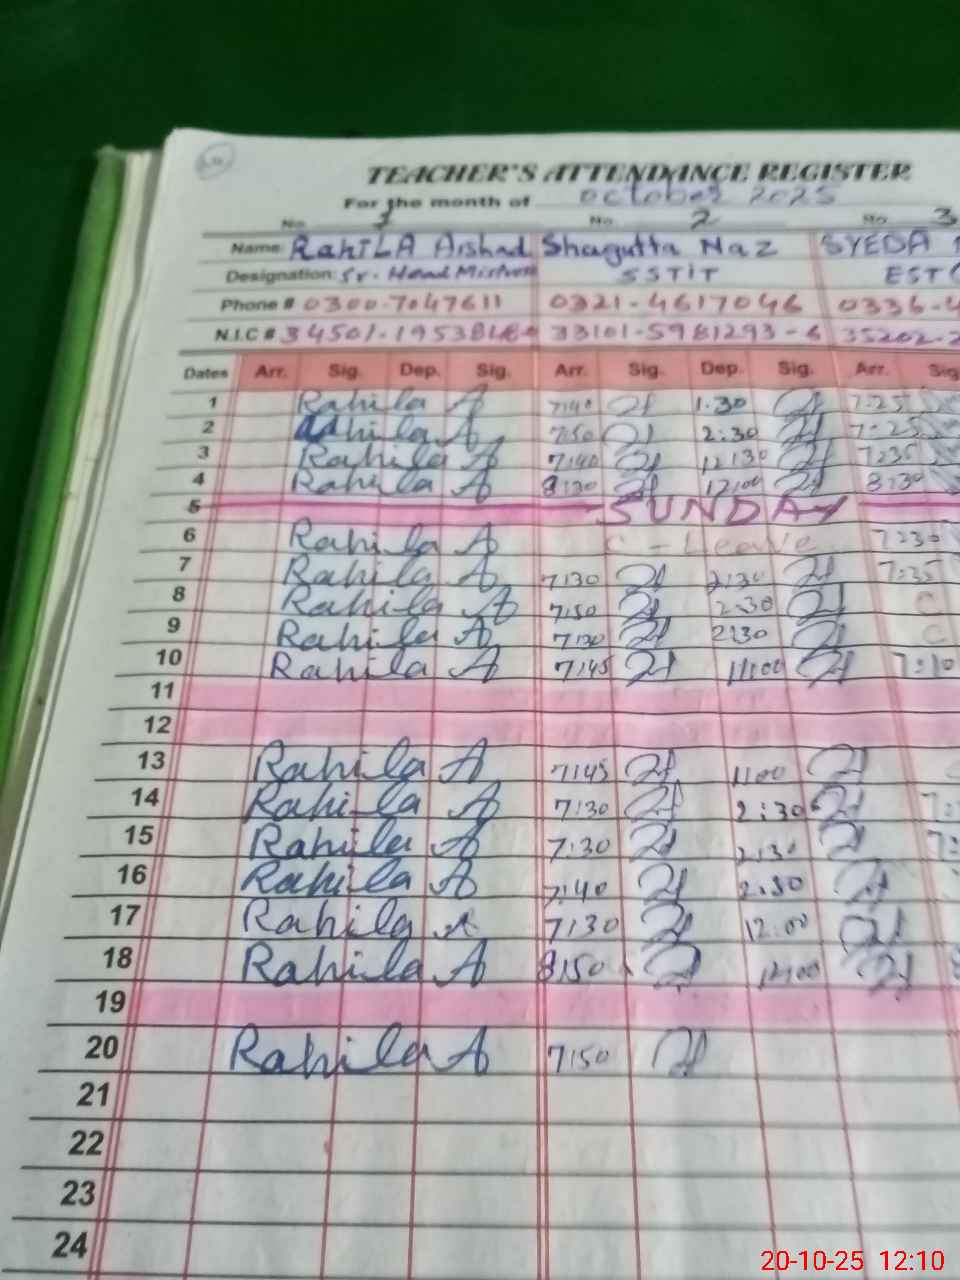 TEACHER'S ATTENDANCE REGISTER
For the month of October 2025
No. 1 No. 2 No. 3
Name: RAHILA Arshad Shagufta Naz SYEDA
Designation: Sr. Head Mistress SSTIT EST
Phone # 0300-7047611 0321-4617046 0336-4
N.I.C # 34501-1953818 33101-5981293-6 35202-2
Dates Arr. Sig. Dep. Sig. Arr. Sig. Dep. Sig. Arr. Sig
1 Rahila A 7:40 1.30 7.25
2 Rahila A 7:50 2:30 7:25
3 Rahila A 7:40 12:30 7:35
4 Rahila A 8:30 12:00 8:30
5 SUNDAY
6 Rahila A C-Leave 7:30
7 Rahila A 7:30 2:30 7:35
8 Rahila A 7:50 2:30 C
9 Rahila A 7:30 2:30 C
10 Rahila A 7:45 11:00 7:10
11
12
13 Rahila A 7:45 11:00
14 Rahila A 7:30 2:30 7:
15 Rahila A 7:30 2:30 7:
16 Rahila A 7:40 2:30
17 Rahila A 7:30 12:00
18 Rahila A 8:50 12:00 8
19
20 Rahila A 7:50
21
22
23
24
20-10-25 12:10